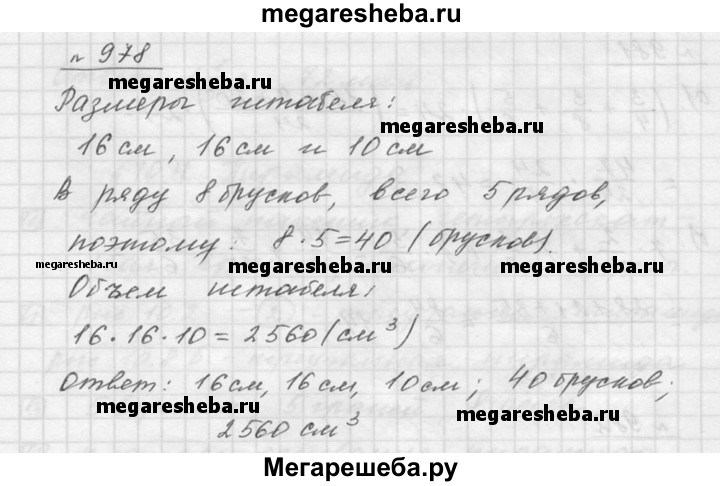 megaresheba.ru
№ 978
megaresheba.ru
Размеры штабеля:
megaresheba.ru
16 см, 16 см и 10 см
В ряду 8 брусков, всего 5 рядов,
поэтому: 8 · 5 = 40 (брусков).
megaresheba.ru megaresheba.ru megaresheba.ru
Объем штабеля:
16 · 16 · 10 = 2560 (см³)
Ответ: 16 см, 16 см, 10 см; 40 брусков;
megaresheba.ru megaresheba.ru
2560 см³
Мегарешеба.ру